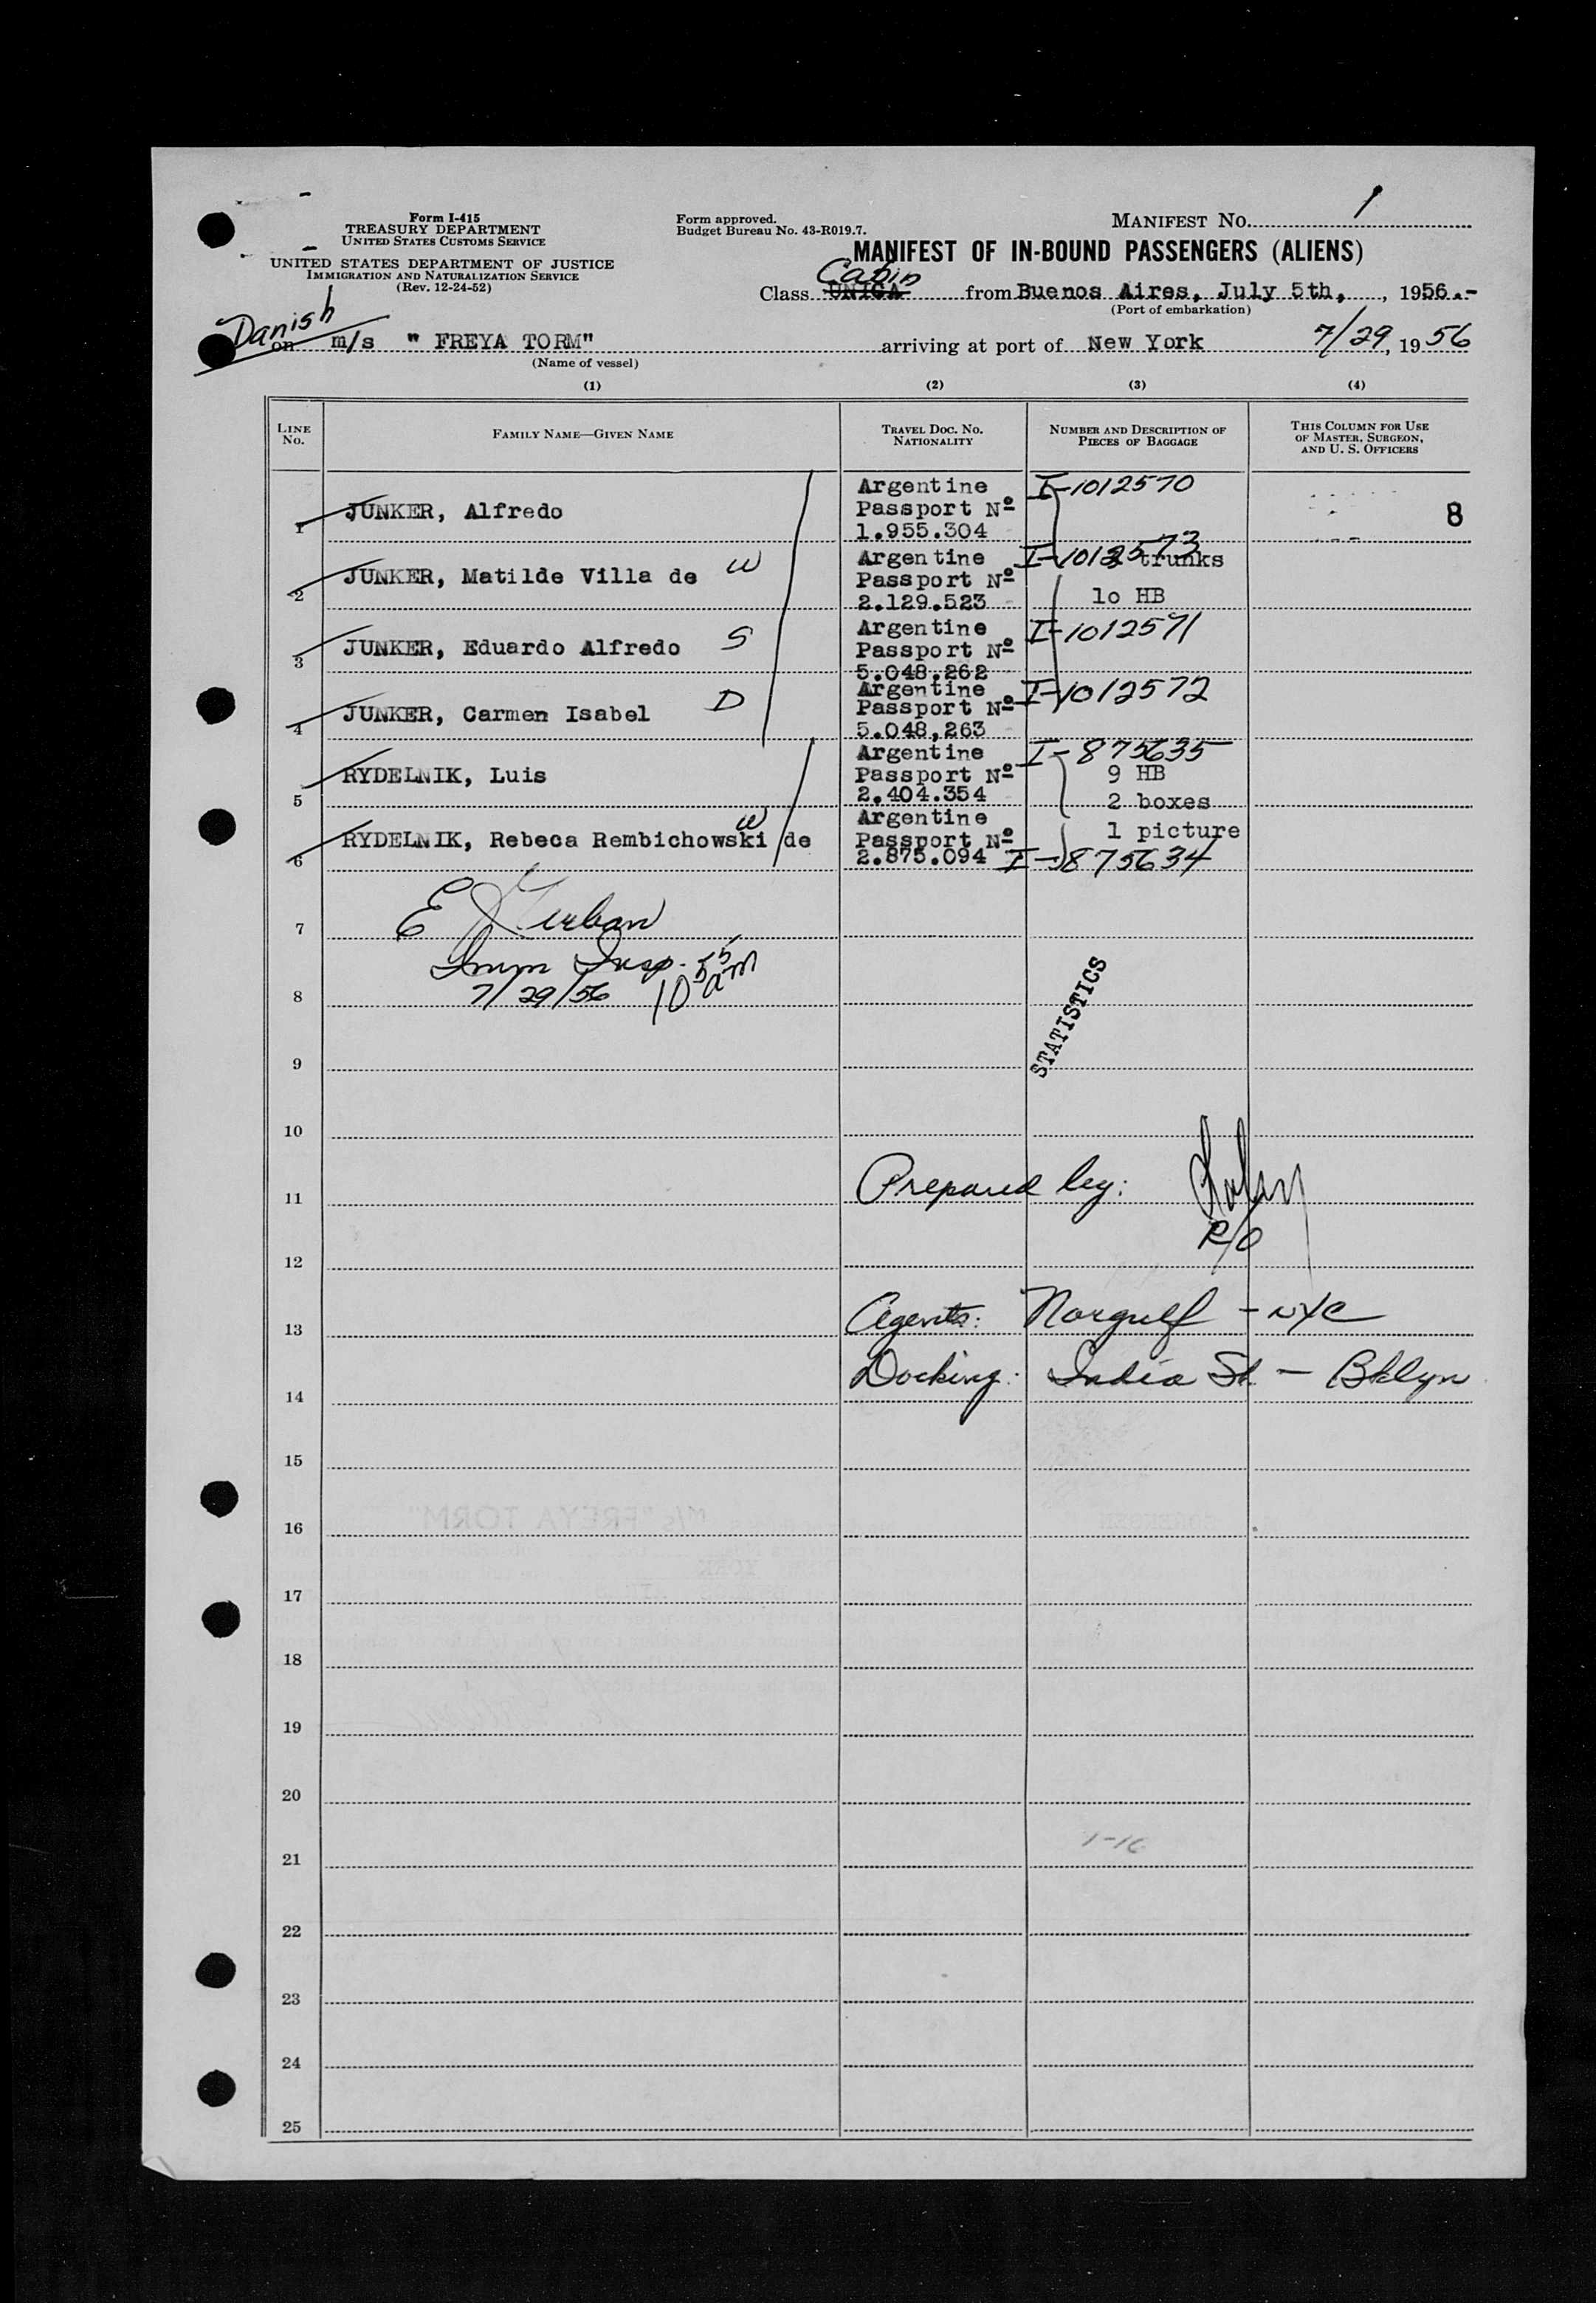 Form I-415
TREASURY DEPARTMENT
UNITED STATES CUSTOMS SERVICE
UNITED STATES DEPARTMENT OF JUSTICE
IMMIGRATION AND NATURALIZATION SERVICE
(Rev. 12-24-52)
Form approved.
Budget Bureau No. 43-R019.7.
MANIFEST NO. 1
MANIFEST OF IN-BOUND PASSENGERS (ALIENS)
Cabin
Class UNICA from Buenos Aires, July 5th, , 1956.-
(Port of embarkation)
Danish
on m/s " FREYA TORM" arriving at port of New York 7/29, 19 56
(Name of vessel)
(1) (2) (3) (4)
LINE NO. FAMILY NAME—GIVEN NAME TRAVEL DOC. NO. NATIONALITY NUMBER AND DESCRIPTION OF PIECES OF BAGGAGE THIS COLUMN FOR USE OF MASTER, SURGEON, AND U. S. OFFICERS
1 JUNKER, Alfredo Argentine Passport Nº 1.955.304 I-1012570 8
2 JUNKER, Matilde Villa de W Argentine Passport Nº 2.129.523 I-1012573 trunks 10 HB
3 JUNKER, Eduardo Alfredo S Argentine Passport Nº 5.048.262 I-1012571
4 JUNKER, Carmen Isabel D Argentine Passport Nº 5.048,263 I-1012572
5 RYDELNIK, Luis Argentine Passport Nº 2.404.354 I-875635 9 HB 2 boxes
6 RYDELNIK, Rebeca Rembichowski de W Argentine Passport Nº 2.875.094 1 picture I-875634
7 E
Imm Insp.
8 7/29/56 10 55 am
STATISTICS
9
10
11 Prepared by:
R/O
12
13 Agents: Norgulf - NYC
14 Docking: India St. - Bklyn
15
16
17
18
19
20
21
22
23
24
25